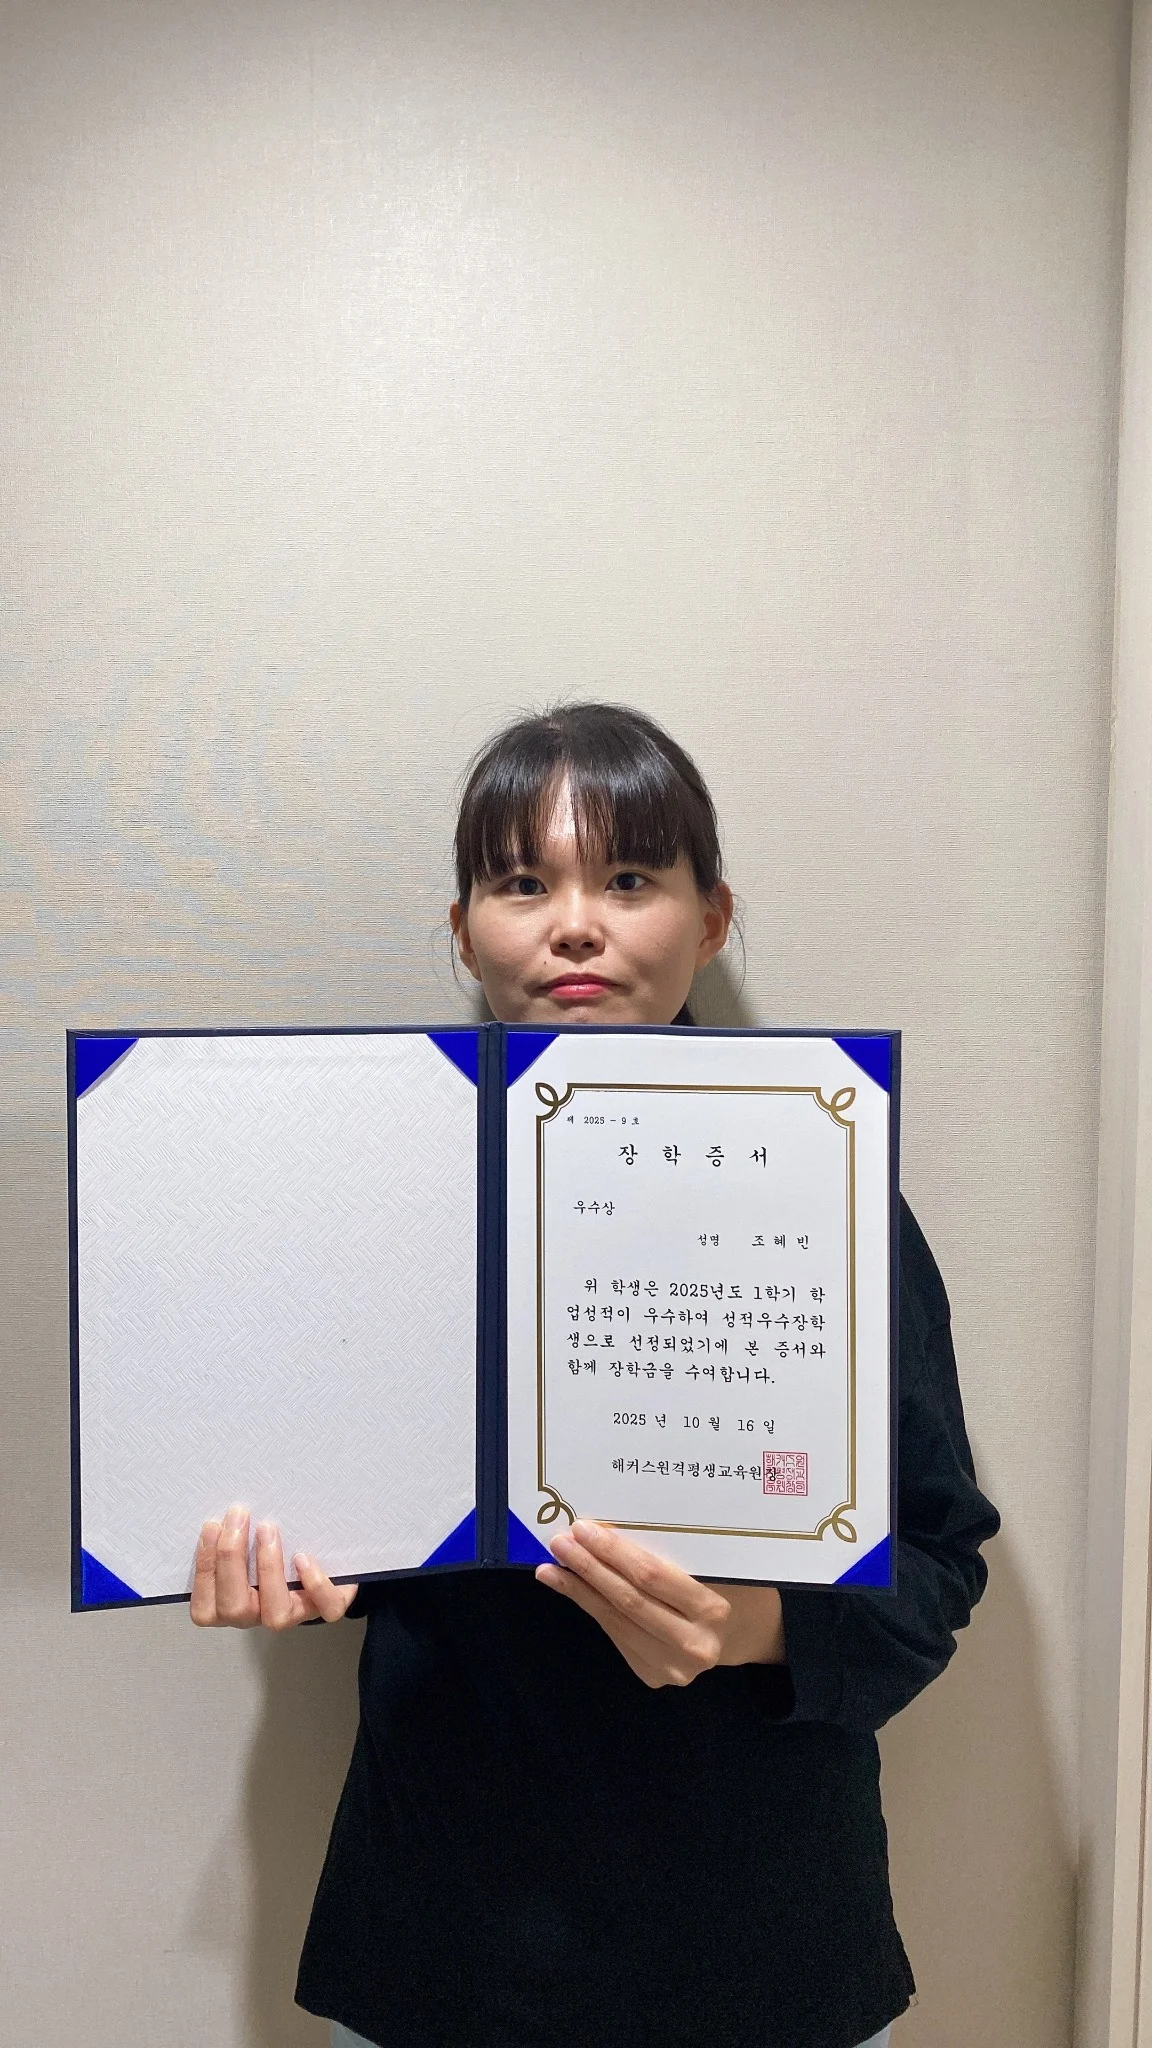 제 2025 - 9 호
장 학 증 서
우수상
성명 조 혜 빈
위 학생은 2025년도 1학기 학
업성적이 우수하여 성적우수장학
생으로 선정되었기에 본 증서와
함께 장학금을 수여합니다.
2025 년 10 월 16 일
해커스원격평생교육원장